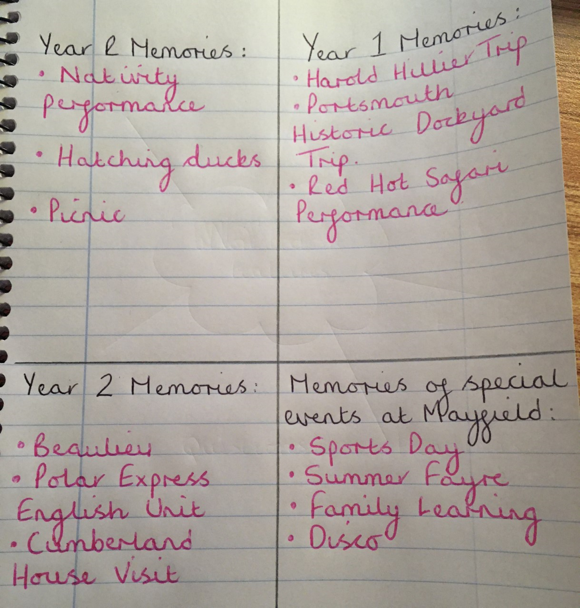 Year R Memories:
• Nativity
performance
• Hatching ducks
• Picnic
Year 1 Memories:
• Harold Hillier Trip
• Portsmouth
Historic Dockyard
Trip.
• Red Hot Safari
Performance
Year 2 Memories:
• Beaulieu
• Polar Express
English Unit
• Cumberland
House Visit
Memories of special
events at Mayfield:
• Sports Day
• Summer Fayre
• Family Learning
• Disco